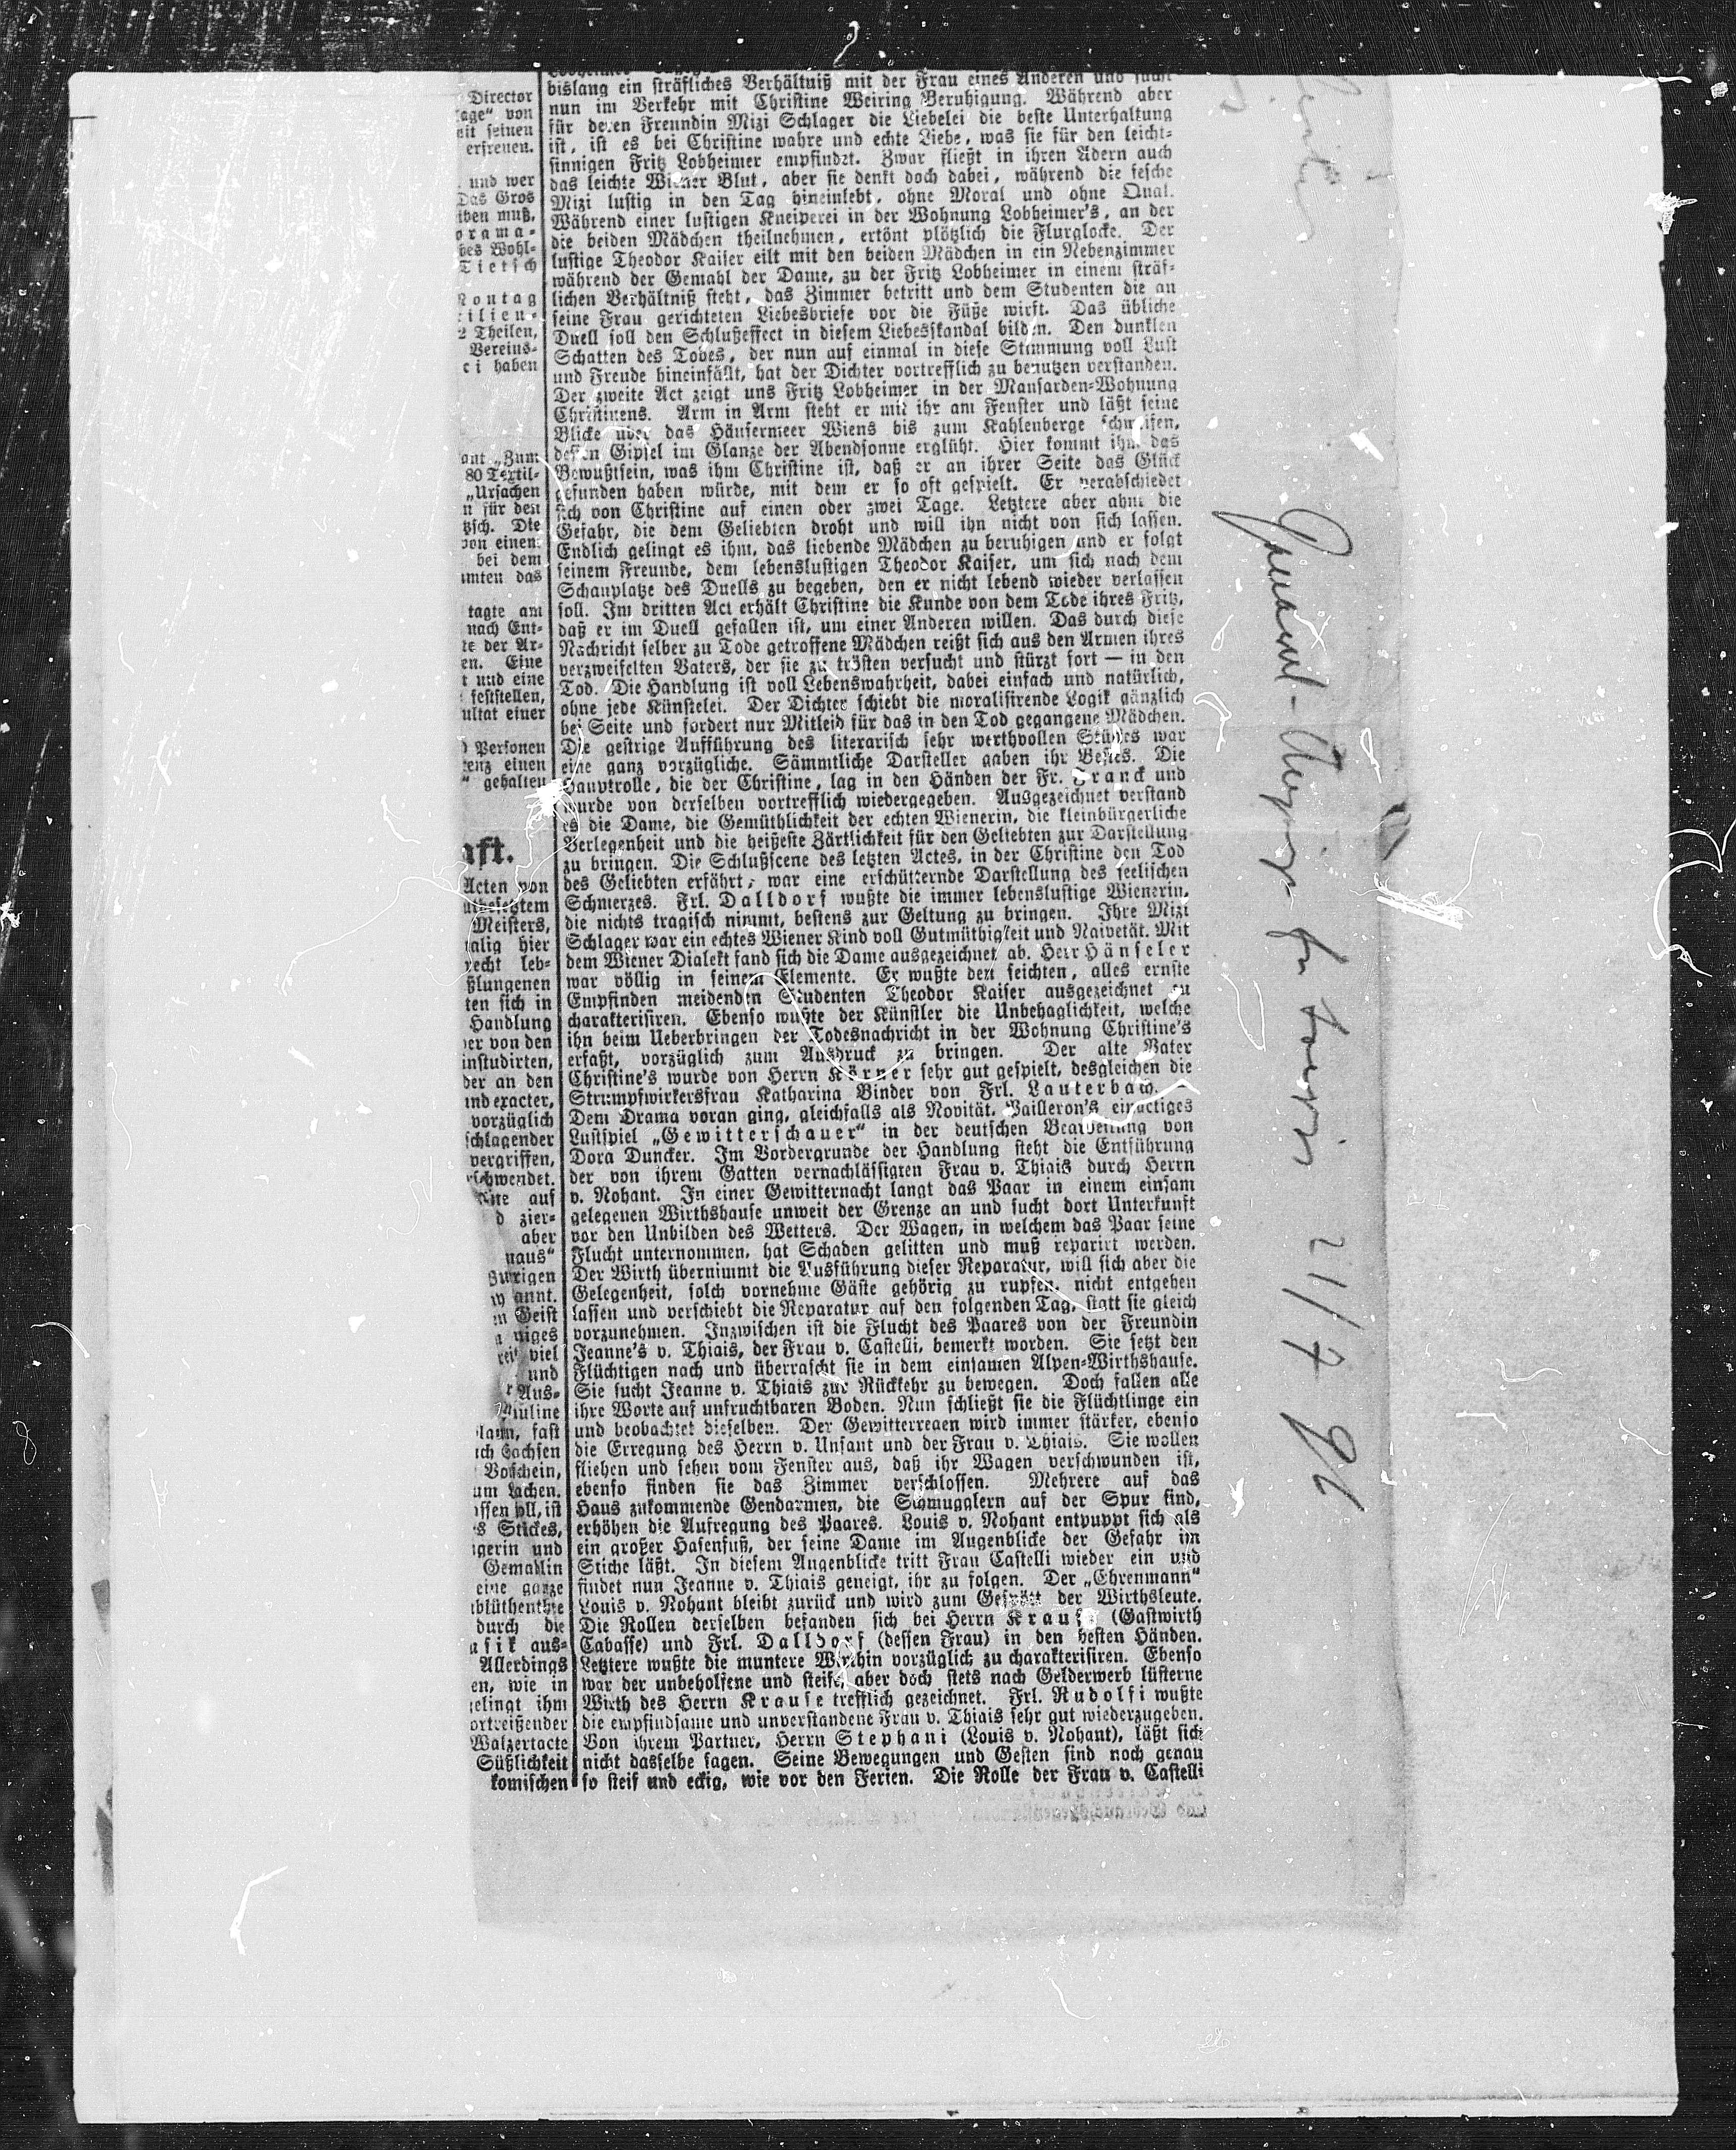 Director
lage“ von
mit seinen
erfreuen.
und wer
Das Gros
iben muß,
orama-
des Wohl-
Tietsch
Montag
cilien-
2 Theilen,
Vereins-
ei haben
„Zum
80 Textil-
„Ursachen
n für den
tzsch. Die
von einem
bei dem
das
tagte am
nach Ent-
te der Ar-
en. Eine
t und eine
feststellen,
ultat einer
Personen
renz einen
“ gehalten
aft.
Acten von
Meisters,
alig hier
recht leb-
ßlungenen
ten sich in
Handlung
er von den
instudirten,
der an den
und exacter,
vorzüglich
schlagender
vergriffen,
schwendet.
auf
d zier-
aber
naus“
annt.
Geist
niges
viel
und
Aus-
auline
fast
Sachsen
um Lachen.
s Stückes,
gerin und
Gemahlin
eine ganze
durch die
usik aus-
Allerdings
en, wie in
gelingt ihm
ortreißender
Walzertacte
Süßlichkeit
komischen
bislang ein sträfliches Verhältniß mit der Frau eines Anderen und sucht
nun im Verkehr mit Christine Weiring Beruhigung. Während aber
für deren Freundin Mizi Schlager die Liebelei die beste Unterhaltung
ist, ist es bei Christine wahre und echte Liebe, was sie für den leicht-
sinnigen Fritz Lobheimer empfindet. Zwar fließt in ihren Adern auch
das leichte Wiener Blut, aber sie denkt doch dabei, während die fesche
Mizi lustig in den Tag hineinlebt, ohne Moral und ohne Qual.
Während einer lustigen Kneiperei in der Wohnung Lobheimer's, an der
die beiden Mädchen theilnehmen, ertönt plötzlich die Flurglocke. Der
lustige Theodor Kaiser eilt mit den beiden Mädchen in ein Nebenzimmer
während der Gemahl der Dame, zu der Fritz Lobheimer in einem sträf-
lichen Verhältniß steht, das Zimmer betritt und dem Studenten die an
seine Frau gerichteten Liebesbriefe vor die Füße wirft. Das übliche
Duell soll den Schlußeffect in diesem Liebesskandal bilden. Den dunklen
Schatten des Todes, der nun auf einmal in diese Stimmung voll Lust
und Freude hineinfällt, hat der Dichter vortrefflich zu benutzen verstanden.
Der zweite Act zeigt uns Fritz Lobheimer in der Mansarden-Wohnung
Christinens. Arm in Arm steht er mit ihr am Fenster und läßt seine
Blicke über das Häusermeer Wiens bis zum Kahlenberge schweifen,
dessen Gipfel im Glanze der Abendsonne erglüht. Hier kommt ihm das
Bewußtsein, was ihm Christine ist, daß er an ihrer Seite das Glück
gefunden haben würde, mit dem er so oft gespielt. Er verabschiedet
sich von Christine auf einen oder zwei Tage. Letztere aber ahnt die
Gefahr, die dem Geliebten droht und will ihn nicht von sich lassen.
Endlich gelingt es ihm, das liebende Mädchen zu beruhigen und er folgt
seinem Freunde, dem lebenslustigen Theodor Kaiser, um sich nach dem
Schauplatze des Duells zu begeben, den er nicht lebend wieder verlassen
soll. Im dritten Act erhält Christine die Kunde von dem Tode ihres Fritz,
daß er im Duell gefallen ist, um einer Anderen willen. Das durch diese
Nachricht selber zu Tode getroffene Mädchen reißt sich aus den Armen ihres
verzweifelten Vaters, der sie zu trösten versucht und stürzt fort — in den
Tod. Die Handlung ist voll Lebenswahrheit, dabei einfach und natürlich,
ohne jede Künstelei. Der Dichter schiebt die moralisirende Logik gänzlich
bei Seite und fordert nur Mitleid für das in den Tod gegangene Mädchen.
Die gestrige Aufführung des literarisch sehr werthvollen Stückes war
eine ganz vorzügliche. Sämmtliche Darsteller gaben ihr Bestes. Die
Hauptrolle, die der Christine, lag in den Händen der Fr. Franck und
wurde von derselben vortrefflich wiedergegeben. Ausgezeichnet verstand
es die Dame, die Gemüthlichkeit der echten Wienerin, die kleinbürgerliche
Verlegenheit und die heißeste Zärtlichkeit für den Geliebten zur Darstellung
zu bringen. Die Schlußscene des letzten Actes, in der Christine den Tod
des Geliebten erfährt, war eine erschütternde Darstellung des seelischen
Schmerzes. Frl. Dalldorf wußte die immer lebenslustige Wienerin,
die nichts tragisch nimmt, bestens zur Geltung zu bringen. Ihre Mizi
Schlager war ein echtes Wiener Kind voll Gutmüthigkeit und Naivetät. Mit
dem Wiener Dialekt fand sich die Dame ausgezeichnet ab. Herr Hänseler
war völlig in seinem Elemente. Er wußte den seichten, alles ernste
Empfinden meidenden Studenten Theodor Kaiser ausgezeichnet zu
charakterisiren. Ebenso wußte der Künstler die Unbehaglichkeit, welche
ihn beim Ueberbringen der Todesnachricht in der Wohnung Christine's
erfaßt, vorzüglich zum Ausdruck zu bringen. Der alte Vater
Christine's wurde von Herrn Körner sehr gut gespielt, desgleichen die
Strumpfwirkersfrau Katharina Binder von Frl. Lauterbach.
Dem Drama voran ging, gleichfalls als Novität, Pailleron's einactiges
Lustspiel „Gewitterschauer“ in der deutschen Bearbeitung von
Dora Duncker. Im Vordergrunde der Handlung steht die Entführung
der von ihrem Gatten vernachlässigten Frau v. Thiais durch Herrn
v. Nohant. In einer Gewitternacht langt das Paar in einem einsam
gelegenen Wirthshause unweit der Grenze an und sucht dort Unterkunft
vor den Unbilden des Wetters. Der Wagen, in welchem das Paar seine
Flucht unternommen, hat Schaden gelitten und muß reparirt werden.
Der Wirth übernimmt die Ausführung dieser Reparatur, will sich aber die
Gelegenheit, solch vornehme Gäste gehörig zu rupfen, nicht entgehen
lassen und verschiebt die Reparatur auf den folgenden Tag, statt sie gleich
vorzunehmen. Inzwischen ist die Flucht des Paares von der Freundin
Jeanne's v. Thiais, der Frau v. Castelli, bemerkt worden. Sie setzt den
Flüchtigen nach und überrascht sie in dem einsamen Alpen-Wirthshause.
Sie sucht Jeanne v. Thiais zur Rückkehr zu bewegen. Doch fallen alle
ihre Worte auf unfruchtbaren Boden. Nun schließt sie die Flüchtlinge ein
und beobachtet dieselben. Der Gewitterregen wird immer stärker, ebenso
die Erregung des Herrn v. Unsant und der Frau v. Thiais. Sie wollen
fliehen und sehen vom Fenster aus, daß ihr Wagen verschwunden ist,
ebenso finden sie das Zimmer verschlossen. Mehrere auf das
Haus zukommende Gendarmen, die Schmugglern auf der Spur sind,
erhöhen die Aufregung des Paares. Louis v. Nohant entpuppt sich als
ein großer Hasenfuß, der seine Dame im Augenblicke der Gefahr im
Stiche läßt. In diesem Augenblicke tritt Frau Castelli wieder ein und
findet nun Jeanne v. Thiais geneigt, ihr zu folgen. Der „Ehrenmann“
Louis v. Nohant bleibt zurück und wird zum Gespött der Wirthsleute.
Die Rollen derselben befanden sich bei Herrn Krause (Gastwirth
Cabasse) und Frl. Dalldorf (dessen Frau) in den besten Händen.
Letztere wußte die muntere Wirthin vorzüglich zu charakterisiren. Ebenso
war der unbeholfene und steife, aber doch stets nach Gelderwerb lüsterne
Wirth des Herrn Krause trefflich gezeichnet. Frl. Rudolfi wußte
die empfindsame und unverstandene Frau v. Thiais sehr gut wiederzugeben.
Von ihrem Partner, Herrn Stephani (Louis v. Nohant), läßt sich
nicht dasselbe sagen. Seine Bewegungen und Gesten sind noch genau
so steif und eckig, wie vor den Ferien. Die Rolle der Frau v. Castelli
21/7 96